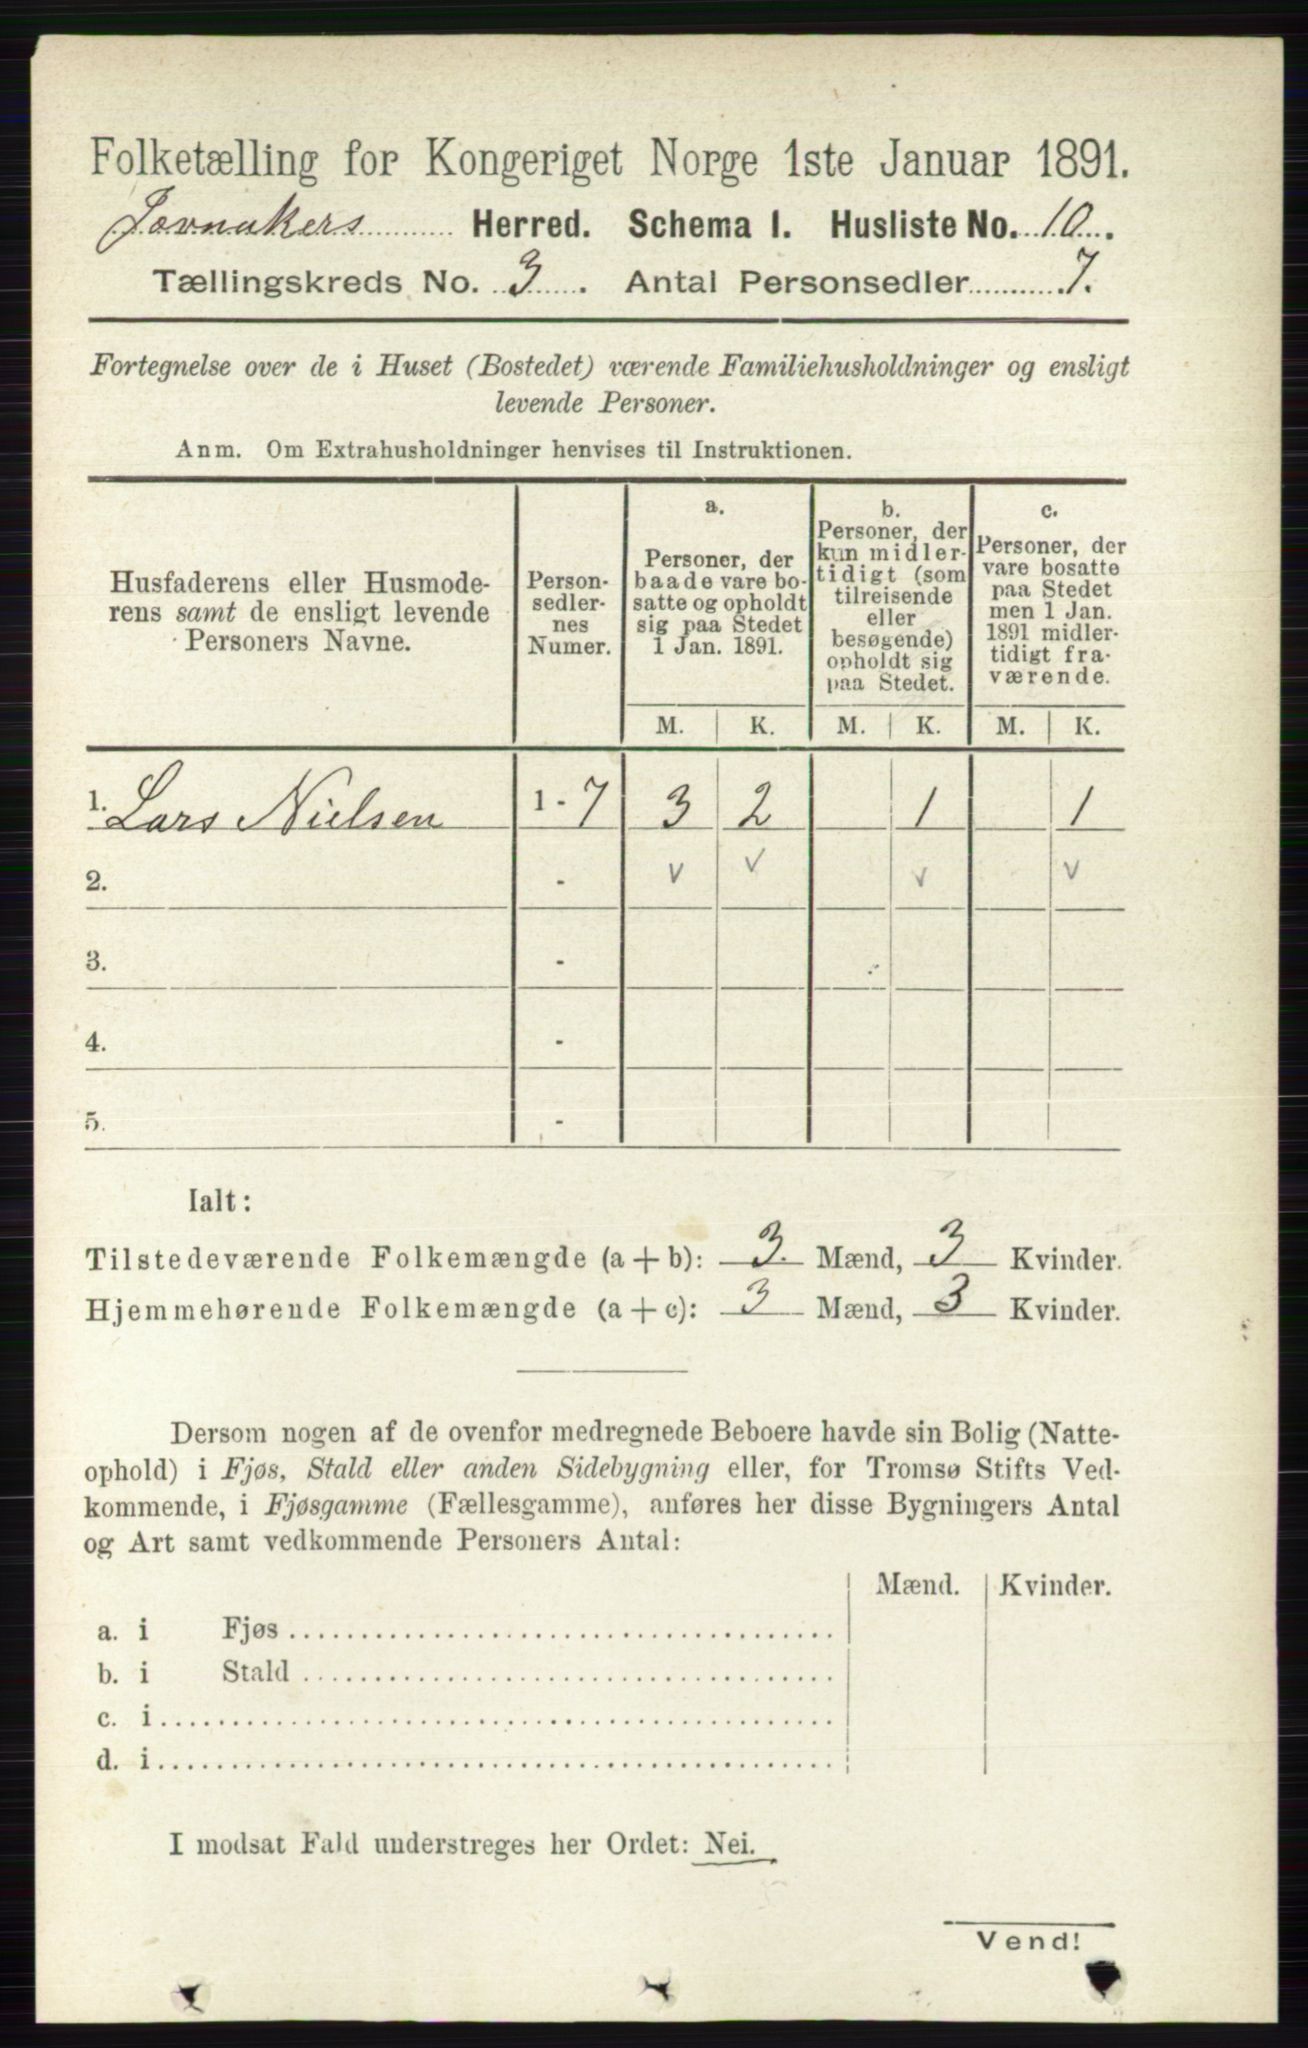 Folketælling for Kongeriget Norge 1ste Januar 1891.
Jevnakers Herred. Schema I. Husliste No. 10.
Tællingskreds No. 3. Antal Personsedler 7.
Fortegnelse over de i Huset (Bostedet) værende Familiehusholdninger og ensligt
levende Personer.
Anm. Om Extrahusholdninger henvises til Instruktionen.
Husfaderens eller Husmode-
rens samt de ensligt levende
Personers Navne.
Person-
sedler-
nes
Numer.
a.
Personer, der
baade vare bo-
satte og opholdt
sig paa Stedet
1 Jan. 1891.
b.
Personer, der
kun midler-
tidigt (som
tilreisende
eller
besøgende)
opholdt sig
paa Stedet.
c.
Personer, der
vare bosatte
paa Stedet
men 1 Jan.
1891 midler-
tidigt fra-
værende.
M. K. M. K. M. K.
1. Lars Nielsen 1 - 7 3 2 1 1
2. - v v v v
3. -
4. -
5. -
Ialt:
Tilstedeværende Folkemængde (a + b): 3. Mænd, 3 Kvinder.
Hjemmehørende Folkemængde (a + c): 3 Mænd, 3 Kvinder.
Dersom nogen af de ovenfor medregnede Beboere havde sin Bolig (Natte-
ophold) i Fjøs, Stald eller anden Sidebygning eller, for Tromsø Stifts Ved-
kommende, i Fjøsgamme (Fællesgamme), anføres her disse Bygningers Antal
og Art samt vedkommende Personers Antal:
Mænd. Kvinder.
a. i Fjøs
b. i Stald
c. i
d. i
I modsat Fald understreges her Ordet: Nei.
Vend!